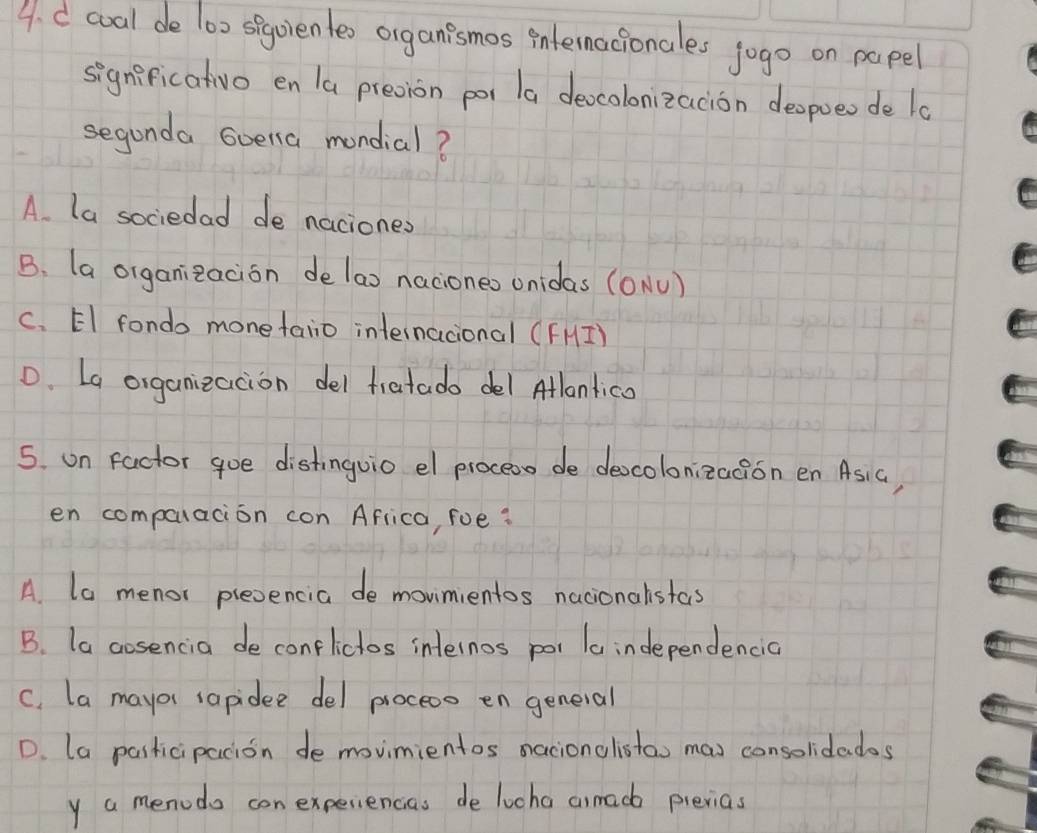 4. ¿ cual de los siguientes organismos internacionales jugo un papel
significativo en la presión por la descolonización despues de la
segunda Guerra mundial?
A. la sociedad de naciones
B. la organización de las naciones unidas (ONU)
C. El fondo monetario internacional (FMI)
D. La organización del tratado del Atlantico
5. un factor que distinguio el proceso de descolonización en Asia,
en comparación con Africa, fue:
A. la menor presencia de movimientos nacionalistas
B. la ausencia de conflictos internos por la independencia
C. la mayor rapidez del proceso en general
D. la participación de movimientos nacionalistas mas consolidados
y a menudo con experiencias de lucha armada previas